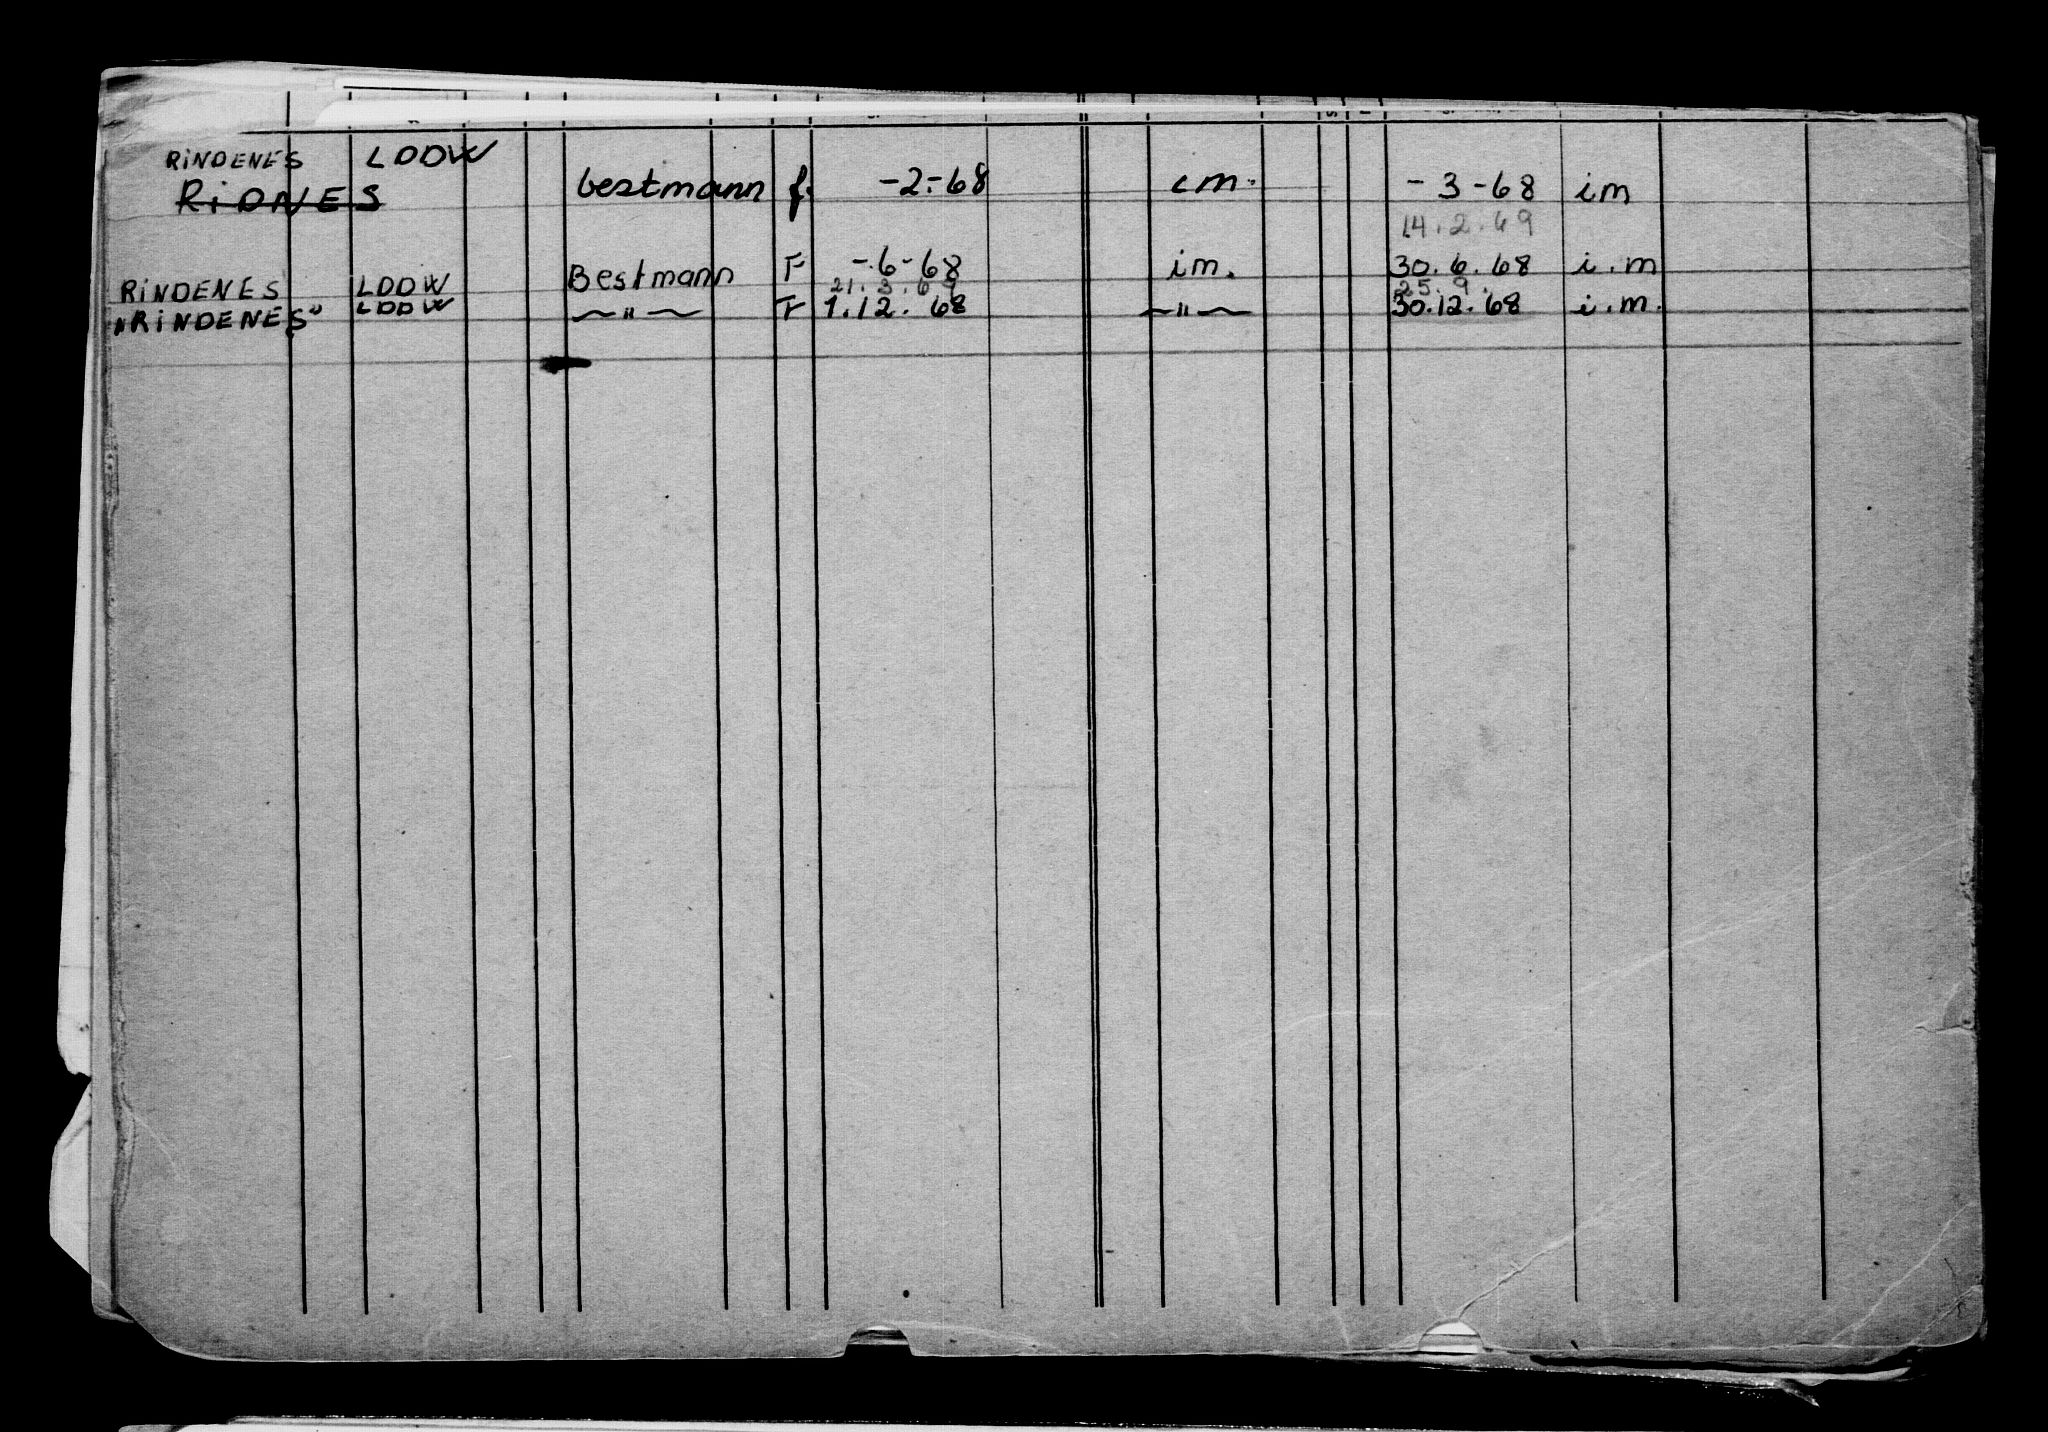 RiNDENES LDDW
RiDNES bestmann f. -2-68 im. -3-68 im
14.2.69
RiNDENES LDDW Bestmann F -.6-68 im. 30.6.68 i.m
21.3.69 25.9.
"RiNDENES" LDDW ~"~ F 1.12.68 ~"~ 30.12.68 i.m.